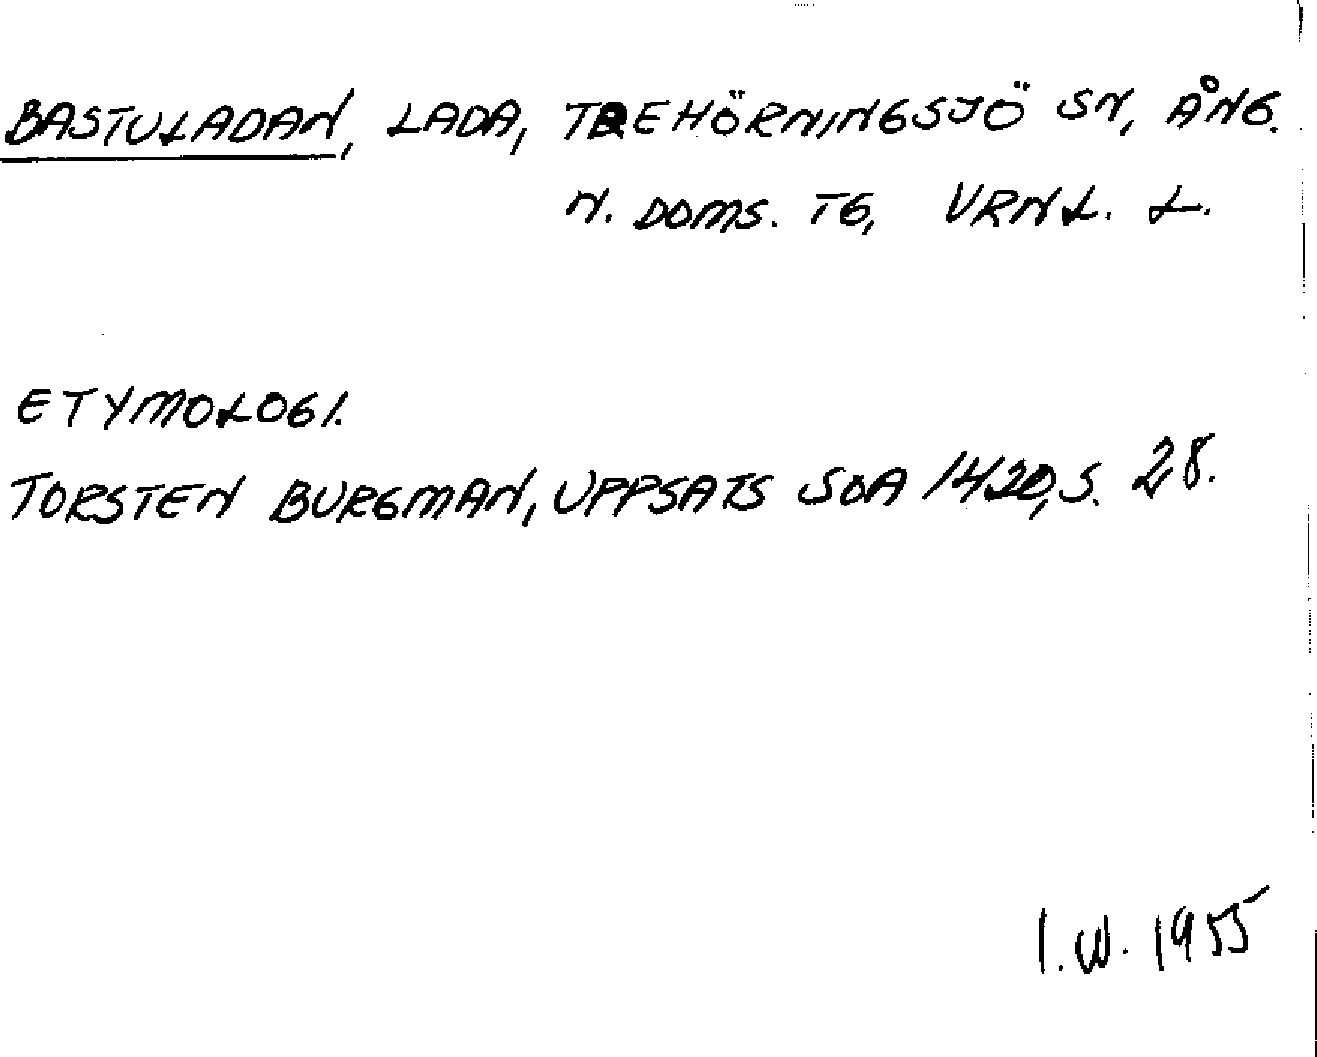 BASTULADAN, LADA, TREHÖRNINGSJÖ SN, ÅNG.
N. DOMS. TG, VRNL. L.
ETYMOLOGI.
TORSTEN BURGMAN, UPPSATS SOA 1420, S. 28.
I.W. 1955